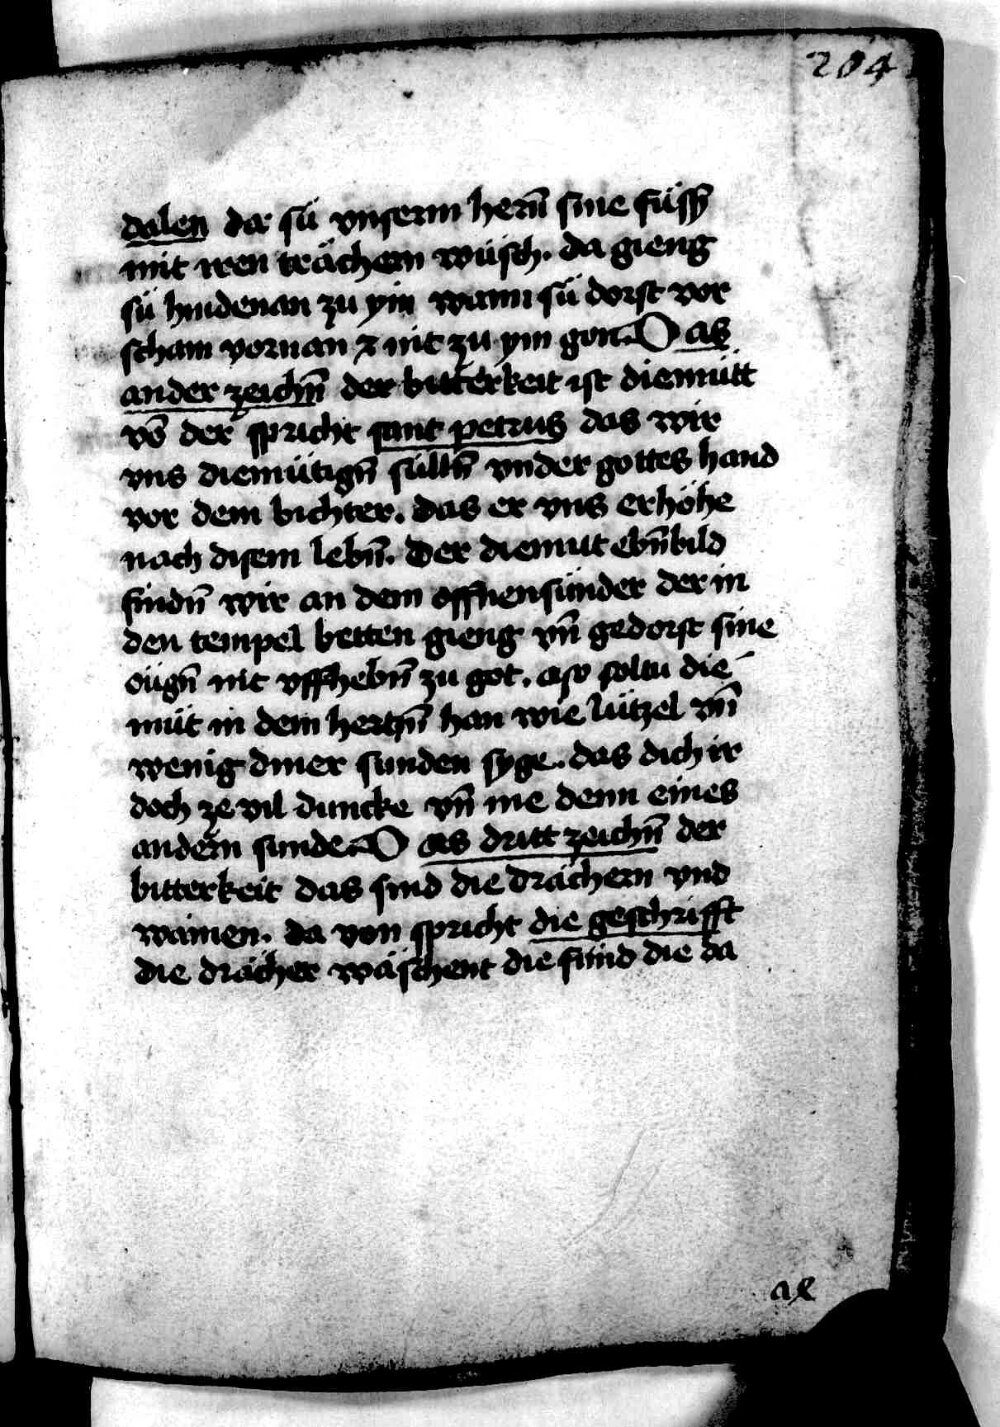 204
dalen da sü vnserm hern̄ sine füsß
mit iren trächern wüsch. da gieng
sü hindenan zu ym wann sü dorst vor
scham vornan z nit zu ym gon. Das
ander zeichn̄ der bitterkeit ist diemütt
vō der spricht sant petrus das wir
vns diemütign̄ sülln̄ vnder gottes hand
vor dem bichter. das er vns erhöhe
nach disem lebn̄. Der diemut ebn̄bild
findn̄ wir an dem offnensünder der in
den tempel betten gieng vn̄ gedorst sine
oügn̄ nit vffhebn̄ zu got. also soltu die
müt in dem hertzn̄ han wie lützel vn̄
wenig diner sunden syge. das dich ir
doch ze vil duncke vn̄ me denn eines
andern sunde. Das dritt zeichn̄ der
bitterkeit das sind die drächern vnd
wainen. da von spricht die geschrifft
die drächer wäschent die sünd die da